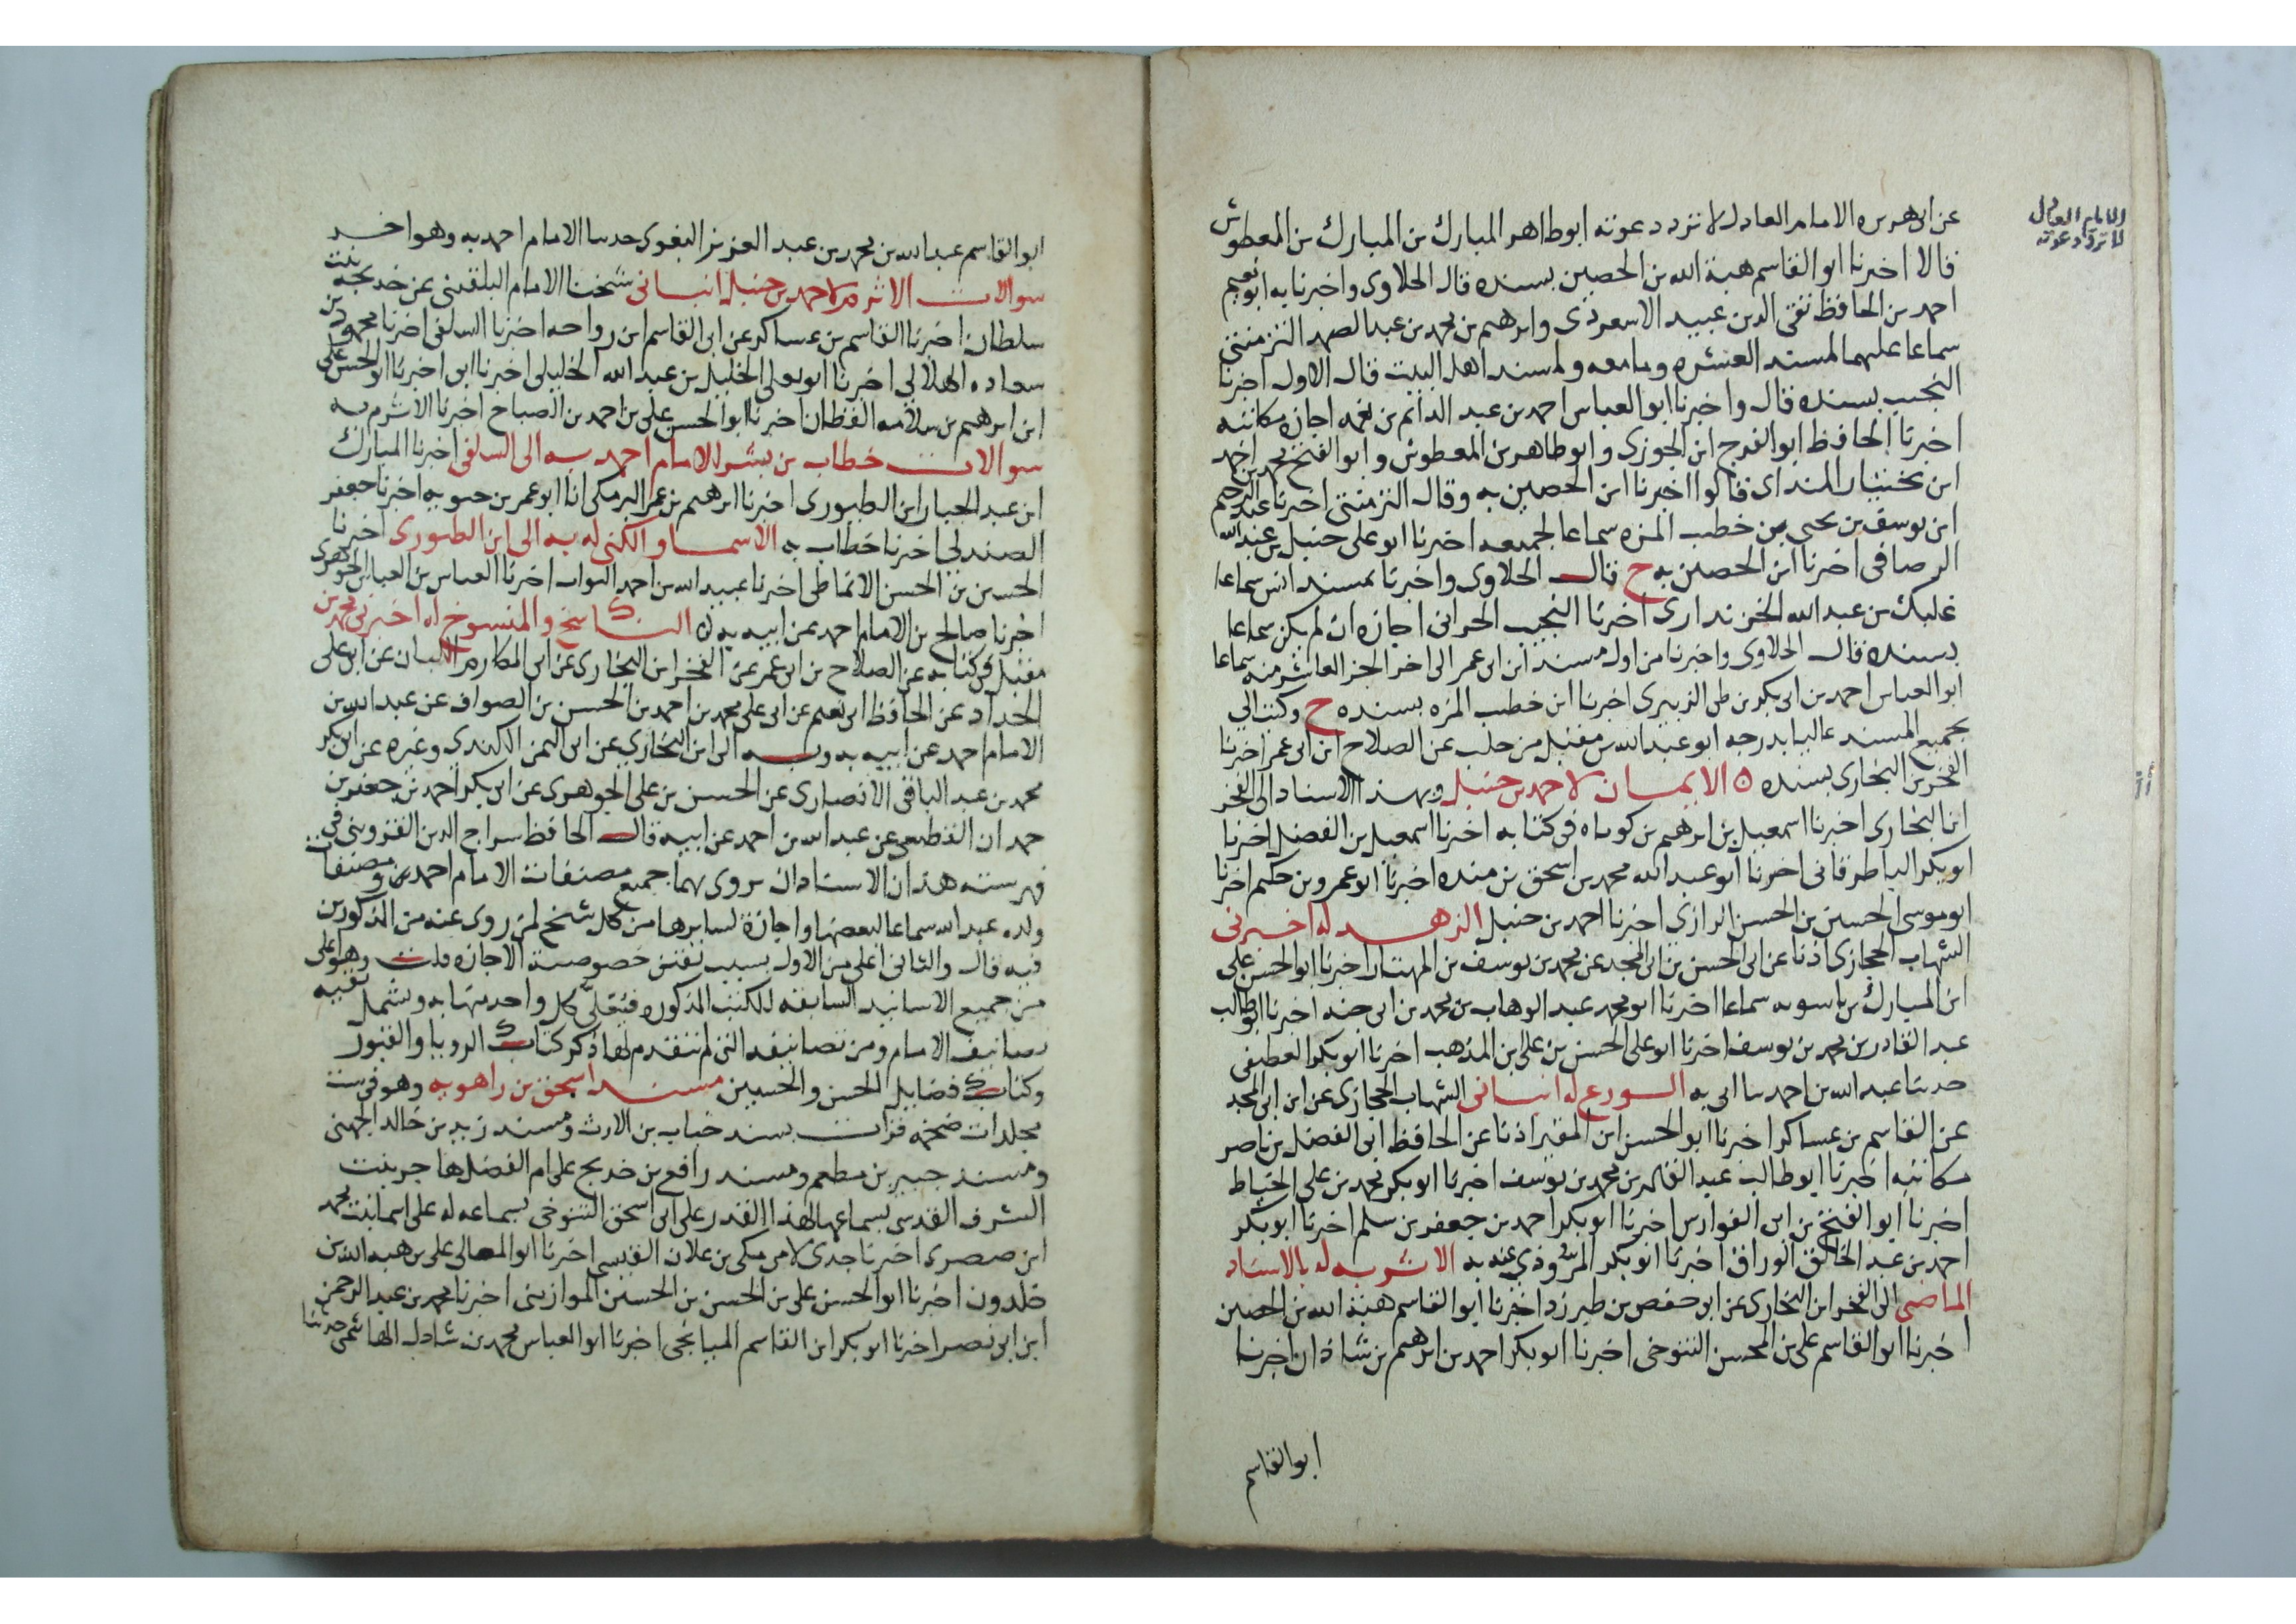 عن ابى هريره الامام العادل لا ترد دعوته ابوطاهر المبارك بن المبارك بن المعطوش
الامام العادل
لا ترد دعوته
قالا اخبرنا ابو القاسم هبة الله بن الحصين بسنده قال الحلاوى واخبرنا به ابو نعيم
احمد بن الحافظ تقى الدين عبيد الاسعردى وابرهيم بن محمد بن عبد الصمد التزمنتى
سماعا عليهما لمسند العشره وما معه ولمسند اهل البيت قال الاول اخبرنا
النجيب بسنده قال واخبرنا ابو العباس احمد بن عبد الدائم بن نعمه اجازه مكاتبه
اخبرنا الحافظ ابو الفرج ابن الجوزى وابو طاهر بن المعطوش وابو الفتح محمد بن احمد
ابن بختيار المنداى قالوا اخبرنا ابن الحصين به وقال التزمنتى اخبرنا عبد الرحيم
ابن يوسف بن يحيى بن خطيب المزه سماعا لجميعه اخبرنا ابو على حنبل بن عبد الله
الرصافى اخبرنا ابن الحصين به ح قال الحلاوى واخبرنا بمسند انس سماعا
غلبك بن عبد الله الخزندارى اخبرنا النجيب الحرانى اجازه ان لم يكن سماعا
بسنده قال الحلاوى واخبرنا من اول مسند ابن ابى عمر الى اخر الجز العاشر منه سماعا
ابو العباس احمد بن ابى بكر بن طى الزبيرى اخبرنا ابن خطيب المزه بسنده ح وكتب الى
بجميع المسند عاليا بدرجه ابو عبد الله بن مقبل من حلب عن الصلاح ابن ابى عمر اخبرنا
الفخر بن البخارى بسنده ه الايمان لاحمد بن حنبل وبهذا الاسناد الى الفخر
ابن البخارى اخبرنا اسمعيل بن ابرهيم بن كوباه فى كتابه اخبرنا اسمعيل بن الفضل اخبرنا
ابو بكر الباطرقانى اخبرنا ابو عبد الله محمد بن اسحق بن منده اخبرنا ابو عمرو بن حكيم اخبرنا
ابو موسى الحسين بن الحسن الرازى اخبرنا احمد بن حنبل الزهد له اخبرنى
الشهاب الحجازى اذنا عن ابى الحسن بن ابى المجد عن محمد بن يوسف بن المهتار اخبرنا ابو الحسن على
ابن المبارك بن باسويه سماعا اخبرنا ابو محمد عبد الوهاب بن محمد بن ابى حنه اخبرنا ابو طالب
عبد القادر بن محمد بن يوسف اخبرنا ابو على الحسن بن على ابن المذهب اخبرنا ابو بكر القطيعى
حدثنا عبد الله بن احمد ثنا ابى به الورع له انبانى الشهاب الحجازى عن ابن ابى المجد
عن القاسم بن عساكر اخبرنا ابو الحسن ابن المقير اذنا عن الحافظ ابى الفضل بن ناصر
مكاتبه اخبرنا ابو طالب عبد القادر بن محمد بن يوسف اخبرنا ابو بكر محمد بن على الخياط
اخبرنا ابو الفتح بن ابى الفوارس اخبرنا ابو بكر احمد بن جعفر بن سلم اخبرنا ابو بكر
احمد بن عبد الخالق الوراق اخبرنا ابو بكر المروذى عنه به الاشربه له بالاسناد
الماضى الى الفخر ابن البخارى عن ابى حفص بن طبرزد اخبرنا ابو القاسم هبة الله بن الحصين
اخبرنا ابو القاسم على بن المحسن التنوخى اخبرنا ابو بكر احمد بن ابرهيم بن شاذان اخبرنا
ابو القاسم
ابو القاسم عبد الله بن محمد بن عبد العزيز البغوى حدثنا الامام احمد به وهو اخر
سوالات الاثرم لاحمد بن حنبل انبانى شيخنا الامام البلقينى عن خديجه بنت
سلطان اخبرنا القاسم بن عساكر عن ابى القاسم ابن رواحه اخبرنا السلفى اخبرنا محمود بن
سعاده الهلالى اخبرنا ابو يعلى الخليل بن عبد الله الخليلى اخبرنا ابى اخبرنا ابو الحسن على
ابن ابرهيم بن سلامه القطان اخبرنا ابو الحسن على بن احمد بن الصباح اخبرنا الاثرم به
سوالات خطاب بن بشر للامام احمد به الى السلفى اخبرنا المبارك
ابن عبد الجبار ابن الطيورى اخبرنا ابرهيم بن عمر البرمكى انا ابو عمر بن حيويه اخبرنا جعفر
الصندلى اخبرنا خطاب به الاسما والكنى له به الى ابن الطيورى اخبرنا
الحسن بن الحسن الانماطى اخبرنا عبيد الله بن احمد البواب اخبرنا العباس بن العباس الجوهرى
اخبرنا صالح بن الامام احمد عن ابيه به ه الناسخ والمنسوخ له اخبرنى محمد بن
مقبل فى كتابه عن الصلاح بن ابى عمر عن الفخر ابن البخارى عن ابى المكارم اللبان عن ابى على
الحداد عن الحافظ ابى نعيم عن ابى على محمد بن احمد بن الحسن بن الصواف عن عبد الله بن
الامام احمد عن ابيه به وبه الى ابن البخارى عن ابى اليمن الكندى وغيره عن ابى بكر
محمد بن عبد الباقى الانصارى عن الحسن بن على الجوهرى عن ابى بكر احمد بن جعفر بن
حمدان القطيعى عن عبد الله بن احمد عن ابيه قال الحافظ سراج الدين القزوينى فى
فهرسته هذان الاسنادان يروى بهما جميع مصنفات الامام احمد ومصنفات
ولده عبد الله سماعا لبعضها واجازة لسايرها من كل شيخ لمن روى عنه من المذكورين
فيه قال والثانى اعلى من الاول بسبب خصوصية الاجازه قلت وهو اعلى
من جميع الاسانيد السابقه للكتب المذكوره كل واحد منها به ويشمل بقيه
تصانيف الامام ومن تصانيفه التى لم يتقدم لها ذكر كتاب الرويا والقبول
وكتاب فضايل الحسن والحسين مسند اسحق بن راهويه وهو فى ست
مجلدات ضخمه قرات مسند خباب بن الارث ومسند زيد بن خالد الجهنى
ومسند جبير بن مطعم ومسند رافع بن خديج على ام الفضل هاجر بنت
الشرف القدسى بسماعها لهذا القدر على ابى اسحق التنوخى بسماعه له على اسما بنت محمد
ابن صصرى اخبرنا جدى لامى مكى بن علان القيسى اخبرنا ابو المعالى على بن هبه الله بن
خلدون اخبرنا ابو الحسن على بن الحسن بن الحسين الموازينى اخبرنا محمد بن عبد الرحمن
ابن ابى نصر اخبرنا ابو بكر ابن القاسم الميانجى اخبرنا ابو العباس محمد بن شادل الهاشمى حدثنا